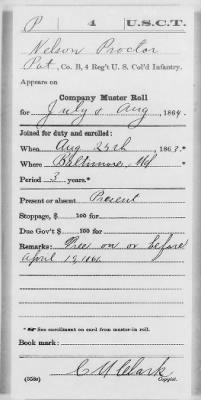 P | 4 | U.S.C.T.
Nelson Proctor
Pvt, Co. B, 4 Reg't U. S. Col'd Infantry.
Appears on
Company Muster Roll
for July & Aug, 1864.
Joined for duty and enrolled:
When Aug 24th, 1863.*
Where Baltimore, Md
Period 3 years.*
Present or absent Present
Stoppage, $ 100 for
Due Gov't $ 100 for
Remarks: Free on or before
April 19, 1861.
*☞ See enrollment on card from muster-in roll.
Book mark:
C M Clark
(358c) Copyist.